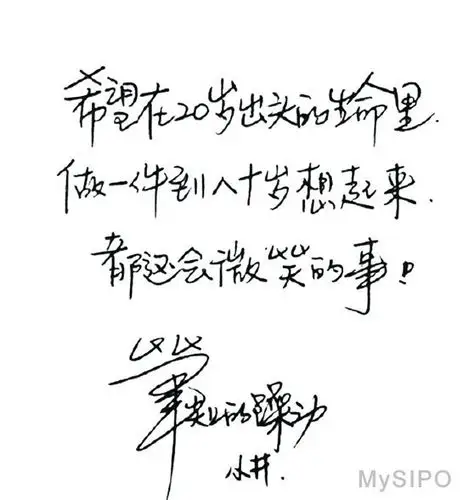 希望在20岁出头的生命里.
做一件到八十岁想起来.
都还会微笑的事!
笔尖上的躁动
小井.
MySIPO